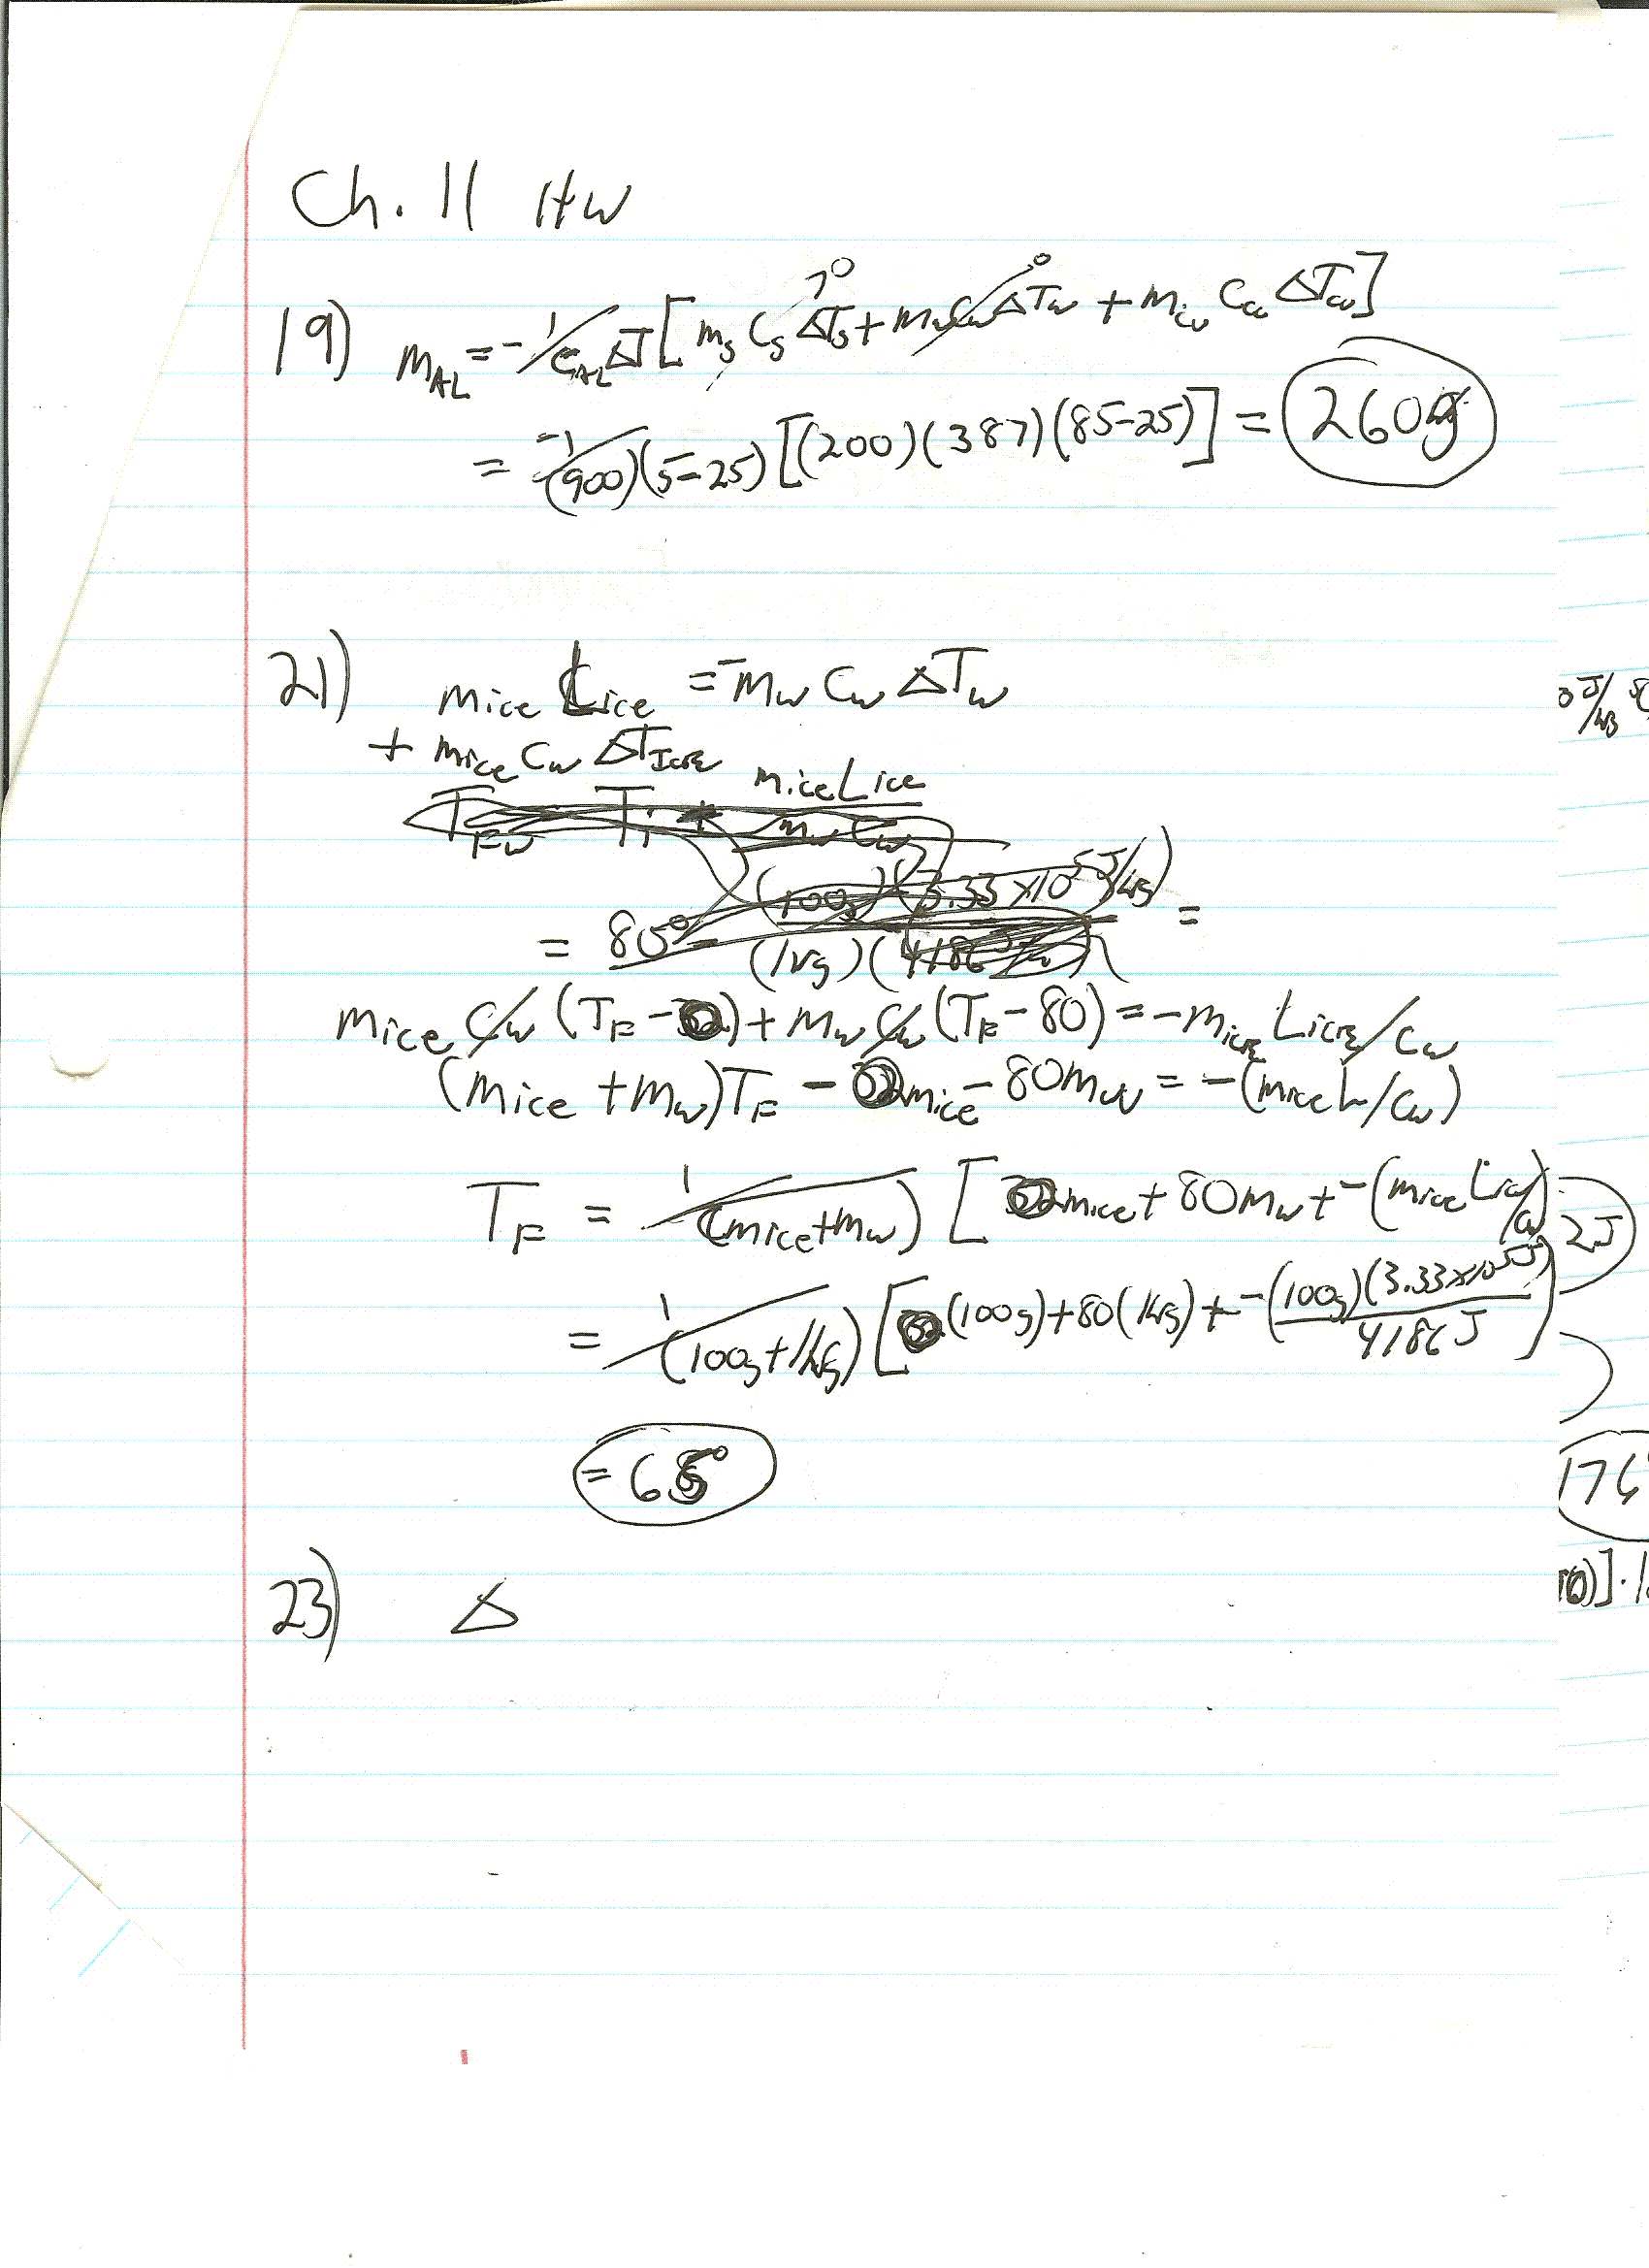 Ch. 11 HW
19) m_AL = -1/(c_AL ΔT) [m_s c_s ΔT_s→0 + m_w c_w ΔT_w→0 + m_cu c_cu ΔT_cu]
= -1/(900)(5-25) [(200)(387)(85-25)] = 260g
21) mice Lice = -m_w c_w ΔT_w
+ mice c_w ΔT_ICE
mice Lice
T_FW T_i m_w c_w
= 80° - (100g)(3.33 x10^5 J/kg) =
(1kg)(4186
mice c_w (T_F - 0) + m_w c_w (T_F - 80) = -mice Lice/c_w
(mice + m_w)T_F - 0 mice - 80 m_w = -(mice L/c_w)
T_F = 1/(mice + m_w) [0 mice + 80 m_w + -(mice Lice/c_w)]
= 1/(100g + 1kg) [0(100g) + 80(1kg) + -(100g)(3.33x10^5 J)/4186 J]
= 65°
23) Δ
0 J/kg
2J
176
)]·1